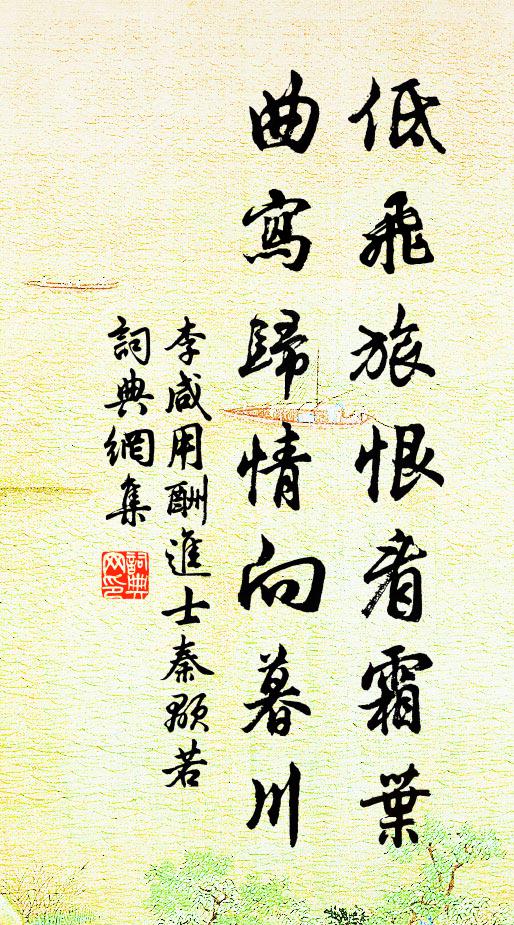 低飛旅恨看霜葉
曲寫歸情向暮川
李咸用酬進士秦顒若
詞典網集
詞典網印